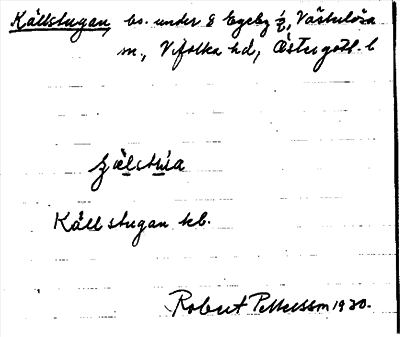 Källstugan, bs. under S Egeby ½, Västulösa
m., Vifolka hd, Östergötl. l
Källstugan kb.
Robert Pettersson 1930.